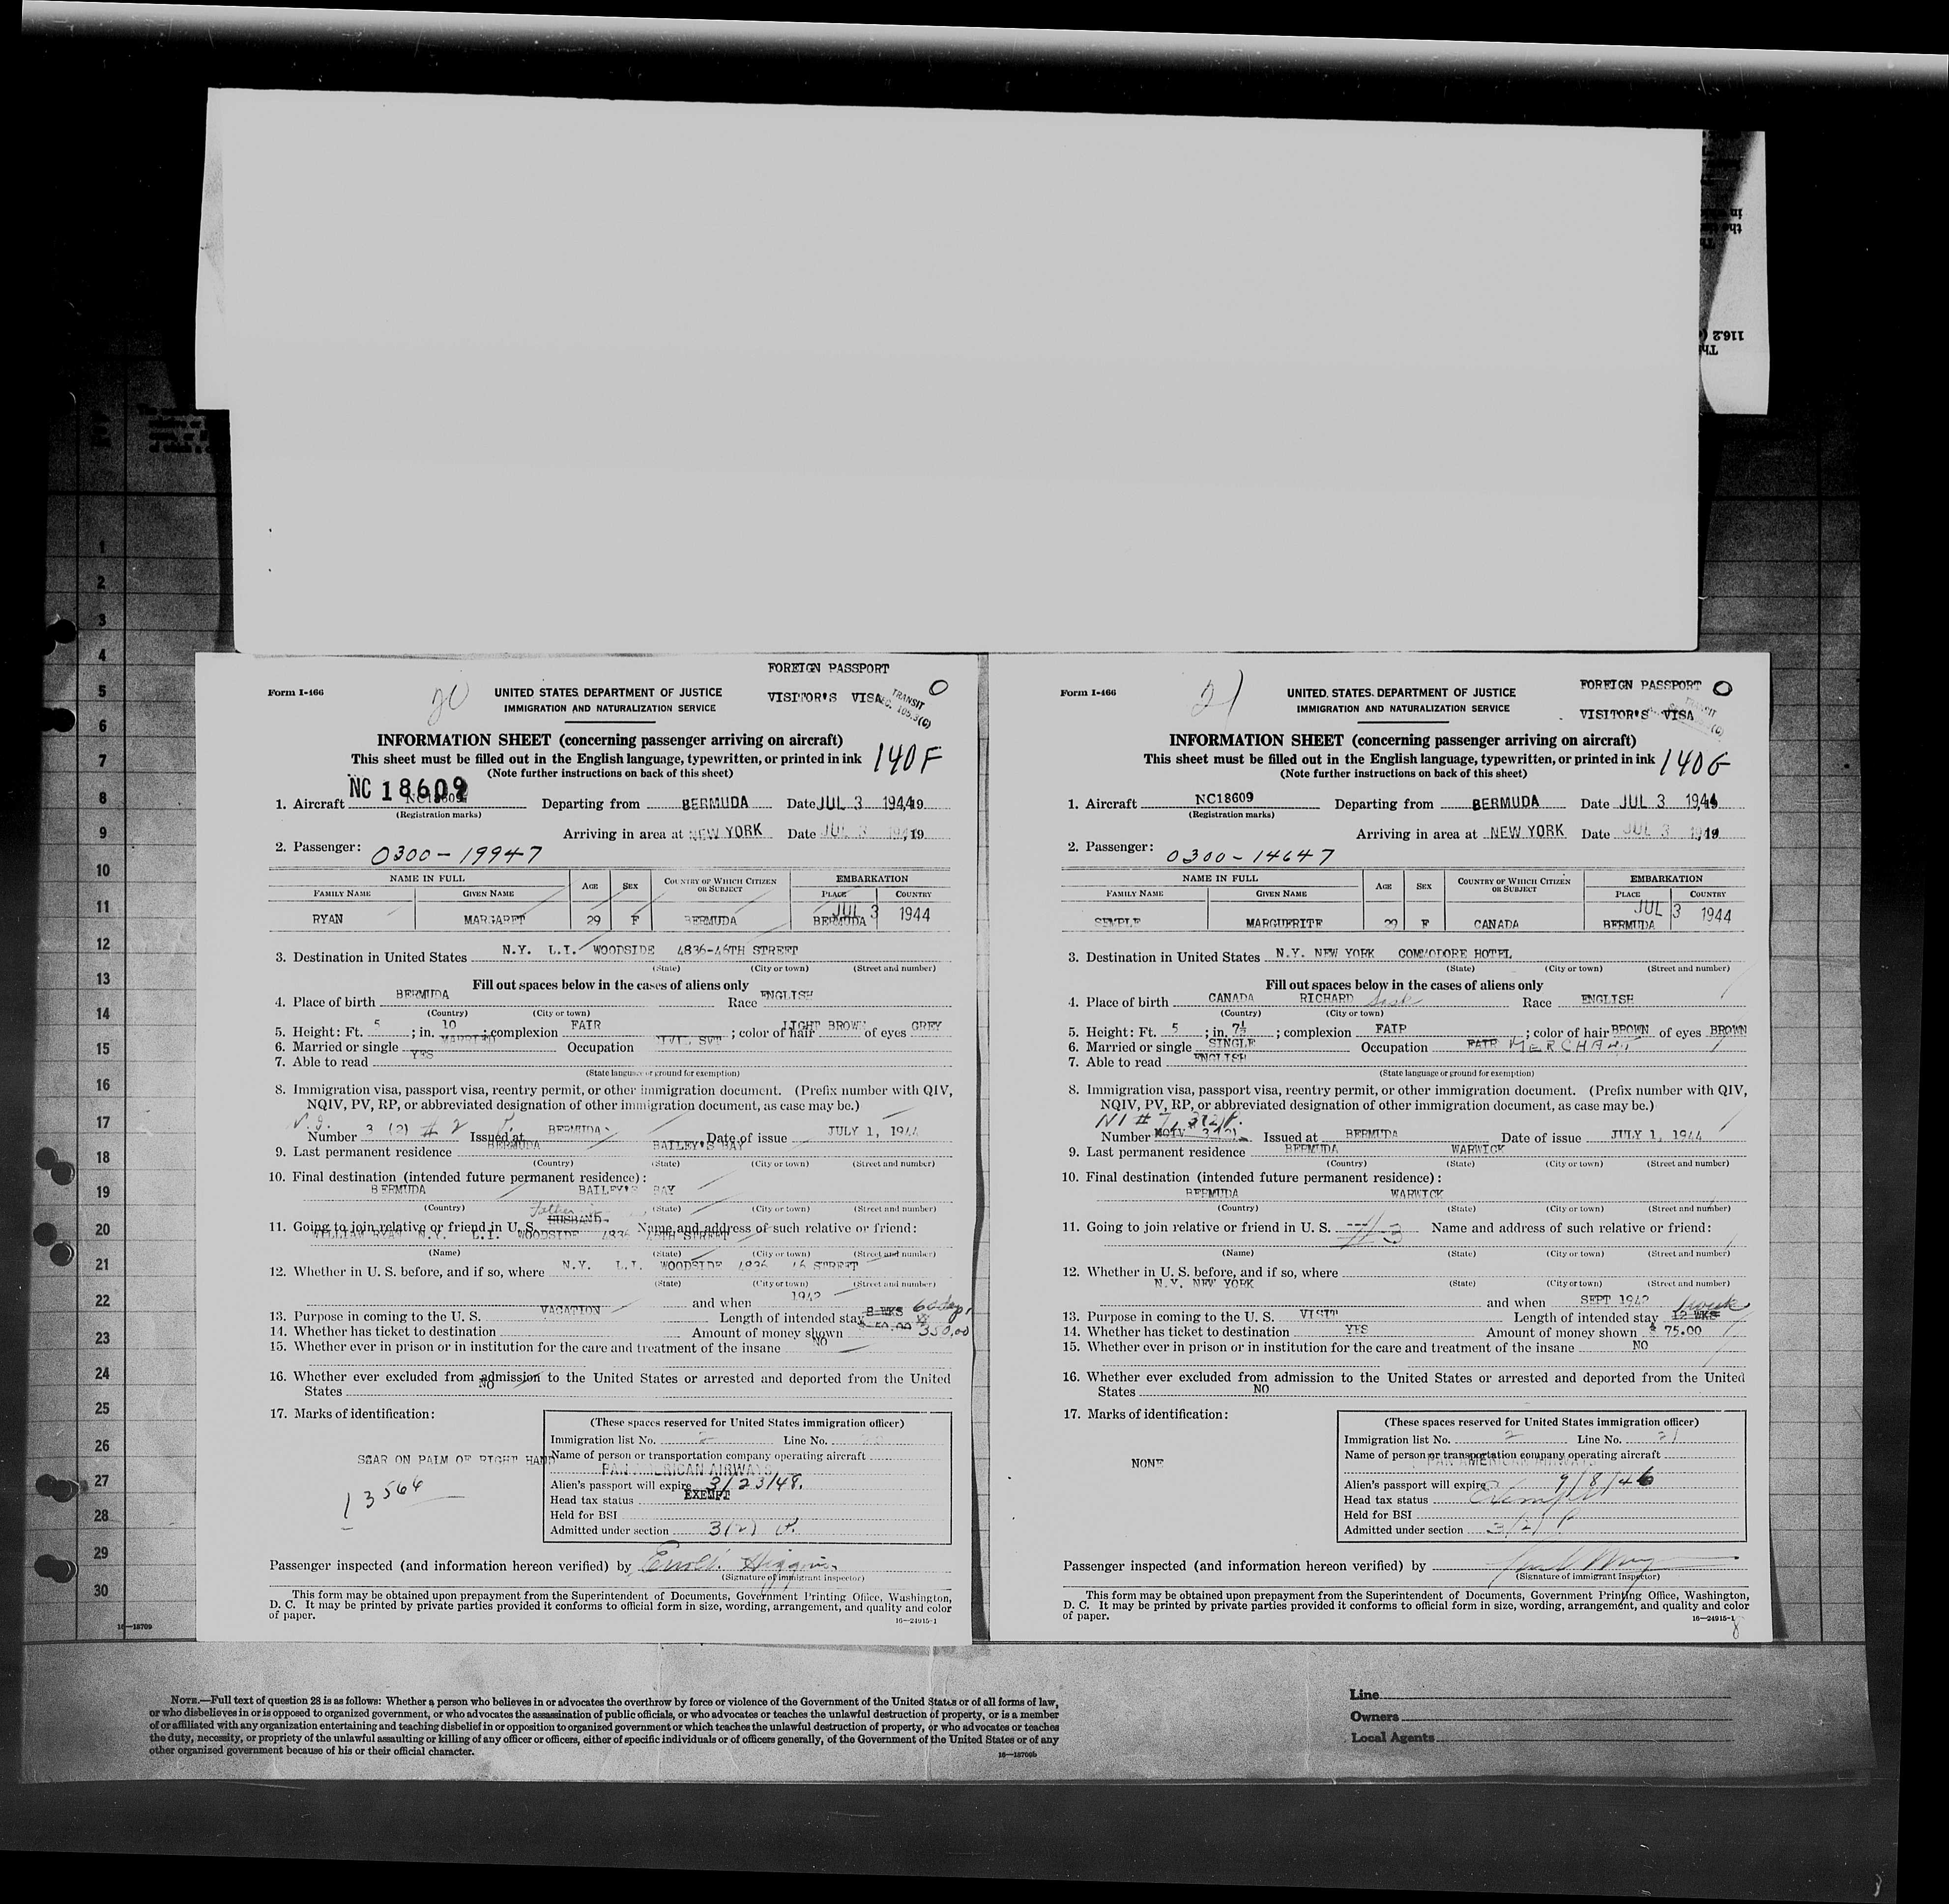 FOREIGN PASSPORT
VISITOR'S VISA
TRANSIT
Form I-466
20
UNITED STATES DEPARTMENT OF JUSTICE
IMMIGRATION AND NATURALIZATION SERVICE
INFORMATION SHEET (concerning passenger arriving on aircraft)
This sheet must be filled out in the English language, typewritten, or printed in ink
140F
(Note further instructions on back of this sheet)
NC 18609
1. Aircraft NC18609 Departing from BERMUDA Date JUL 3 1944, 19
(Registration marks)
Arriving in area at NEW YORK Date JUL 3 1944, 19
2. Passenger: 0300-19947
NAME IN FULL AGE SEX COUNTRY OF WHICH CITIZEN OR SUBJECT EMBARKATION
FAMILY NAME GIVEN NAME PLACE COUNTRY
JUL 3 1944
RYAN MARGARET 29 F BERMUDA BERMUDA
3. Destination in United States N.Y. L.I. WOODSIDE 4836-46TH STREET
(State) (City or town) (Street and number)
Fill out spaces below in the cases of aliens only
4. Place of birth BERMUDA Race ENGLISH
(Country) (City or town)
5. Height: Ft. 5 ; in. 10 ; complexion FAIR ; color of hair LIGHT BROWN of eyes GREY
6. Married or single MARRIED Occupation CIVIL SVT
7. Able to read YES
(State language or ground for exemption)
8. Immigration visa, passport visa, reentry permit, or other immigration document. (Prefix number with QIV,
NQIV, PV, RP, or abbreviated designation of other immigration document, as case may be.)
Number 3 (2) # 2 Issued at BERMUDA Date of issue JULY 1, 1944
9. Last permanent residence BERMUDA BAILEY'S BAY
(Country) (State) (City or town) (Street and number)
10. Final destination (intended future permanent residence):
BERMUDA BAILEY'S BAY
(Country) (State) (City or town) (Street and number)
Father
11. Going to join relative or friend in U. S. HUSBAND. Name and address of such relative or friend:
WILLIAM RYAN N.Y. L.I. WOODSIDE 4836 46TH STREET
(Name) (State) (City or town) (Street and number)
12. Whether in U. S. before, and if so, where N.Y. L.I. WOODSIDE 4836 46 STREET
(State) (City or town) (Street and number)
and when 1942
13. Purpose in coming to the U. S. VACATION Length of intended stay 8 WKS 60 days
14. Whether has ticket to destination Amount of money shown $ 50.00 350.00
15. Whether ever in prison or in institution for the care and treatment of the insane NO
16. Whether ever excluded from admission to the United States or arrested and deported from the United
States NO
17. Marks of identification:
SCAR ON PALM OF RIGHT HAND
13566
(These spaces reserved for United States immigration officer)
Immigration list No. 2 Line No.
Name of person or transportation company operating aircraft
PAN AMERICAN AIRWAYS
Alien's passport will expire 3/23/48.
Head tax status EXEMPT
Held for BSI
Admitted under section 3(2)
Passenger inspected (and information hereon verified) by Higgins
(Signature of immigrant inspector)
This form may be obtained upon prepayment from the Superintendent of Documents, Government Printing Office, Washington,
D. C. It may be printed by private parties provided it conforms to official form in size, wording, arrangement, and quality and color
of paper.
16—24915-1
FOREIGN PASSPORT
VISITOR'S VISA
Form I-466
21
UNITED STATES DEPARTMENT OF JUSTICE
IMMIGRATION AND NATURALIZATION SERVICE
INFORMATION SHEET (concerning passenger arriving on aircraft)
This sheet must be filled out in the English language, typewritten, or printed in ink
140G
(Note further instructions on back of this sheet)
1. Aircraft NC18609 Departing from BERMUDA Date JUL 3 1944
(Registration marks)
Arriving in area at NEW YORK Date JUL 3 1944
2. Passenger: 0300-14647
NAME IN FULL AGE SEX COUNTRY OF WHICH CITIZEN OR SUBJECT EMBARKATION
FAMILY NAME GIVEN NAME PLACE COUNTRY
JUL 3 1944
SEMPLE MARGUERITE 29 F CANADA BERMUDA
3. Destination in United States N.Y. NEW YORK COMMODORE HOTEL
(State) (City or town) (Street and number)
Fill out spaces below in the cases of aliens only
4. Place of birth CANADA RICHARD Sask Race ENGLISH
(Country) (City or town)
5. Height: Ft. 5 ; in. 7½ ; complexion FAIR ; color of hair BROWN of eyes BROWN
6. Married or single SINGLE Occupation FAIR MERCHANT
7. Able to read ENGLISH
(State language or ground for exemption)
8. Immigration visa, passport visa, reentry permit, or other immigration document. (Prefix number with QIV,
NQIV, PV, RP, or abbreviated designation of other immigration document, as case may be.)
Number Issued at BERMUDA Date of issue JULY 1, 1944
9. Last permanent residence BERMUDA WARWICK
(Country) (State) (City or town) (Street and number)
10. Final destination (intended future permanent residence):
BERMUDA WARWICK
(Country) (State) (City or town) (Street and number)
11. Going to join relative or friend in U. S. #3 Name and address of such relative or friend:
(Name) (State) (City or town) (Street and number)
12. Whether in U. S. before, and if so, where
N.Y. NEW YORK
(State) (City or town) (Street and number)
and when SEPT 1942
13. Purpose in coming to the U. S. VISIT Length of intended stay 12 WKS 1 week
14. Whether has ticket to destination YES Amount of money shown $ 75.00
15. Whether ever in prison or in institution for the care and treatment of the insane NO
16. Whether ever excluded from admission to the United States or arrested and deported from the United
States NO
17. Marks of identification:
NONE
(These spaces reserved for United States immigration officer)
Immigration list No. 2 Line No. 21
Name of person or transportation company operating aircraft
PAN AMERICAN AIRWAYS
Alien's passport will expire 9/8/46
Head tax status Exempt
Held for BSI
Admitted under section 3(2)
Passenger inspected (and information hereon verified) by
(Signature of immigrant inspector)
This form may be obtained upon prepayment from the Superintendent of Documents, Government Printing Office, Washington,
D. C. It may be printed by private parties provided it conforms to official form in size, wording, arrangement, and quality and color
of paper.
16—24915-1
8
1
2
3
4
5
6
7
8
9
10
11
12
13
14
15
16
17
18
19
20
21
22
23
24
25
26
27
28
29
30
16—18709
NOTE.—Full text of question 28 is as follows: Whether a person who believes in or advocates the overthrow by force or violence of the Government of the United States or of all forms of law,
or who disbelieves in or is opposed to organized government, or who advocates the assassination of public officials, or who advocates or teaches the unlawful destruction of property, or is a member
of or affiliated with any organization entertaining and teaching disbelief in or opposition to organized government or which teaches the unlawful destruction of property, or who advocates or teaches
the duty, necessity, or propriety of the unlawful assaulting or killing of any officer or officers, either of specific individuals or of officers generally, of the Government of the United States or of any
other organized government because of his or their official character.
16—18700b
Line
Owners
Local Agents